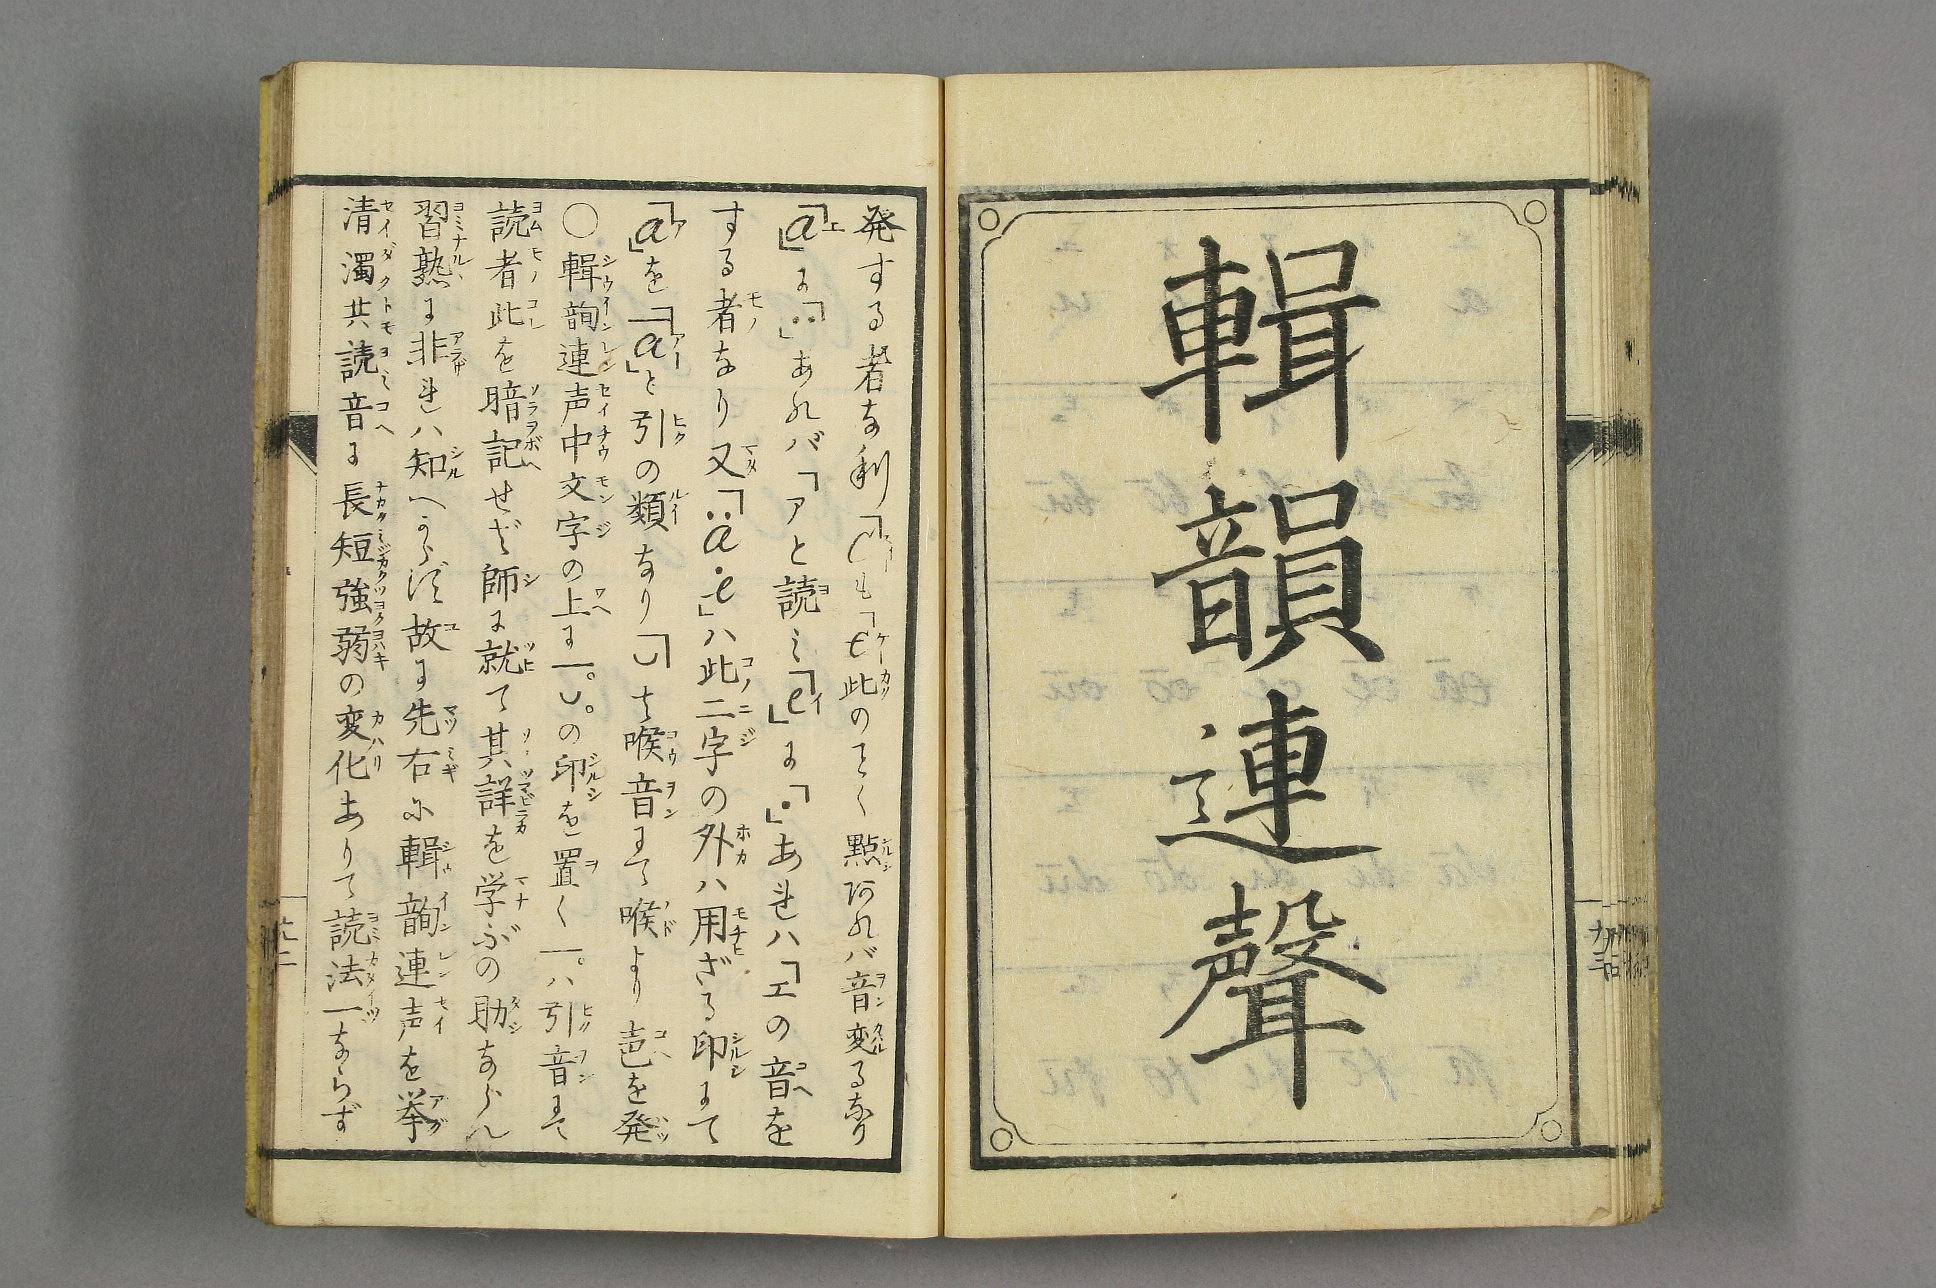 輯韻連聲
発する者な利「も「e此のてく點阿れバ音変るなり
「a」に「¨」あれバ「アと読ミ「e」に「・」あれハ「エの音を
する者なり又「ä・e」ハ此二字の外ハ用ざる印にて
「a」を「a」と引の類なり「⌣」ハ喉音にて喉より声を発
〇輯韻連声中文字の上に―。⌣。の印を置く―。ハ引音にて
読者此を暗記せざれバ師に就て其詳を学ぶの助ならん
習熟に非れハ知へからず故に先右に輯韻連声を挙
清濁共読音に長短強弱の変化ありて読法一ならず